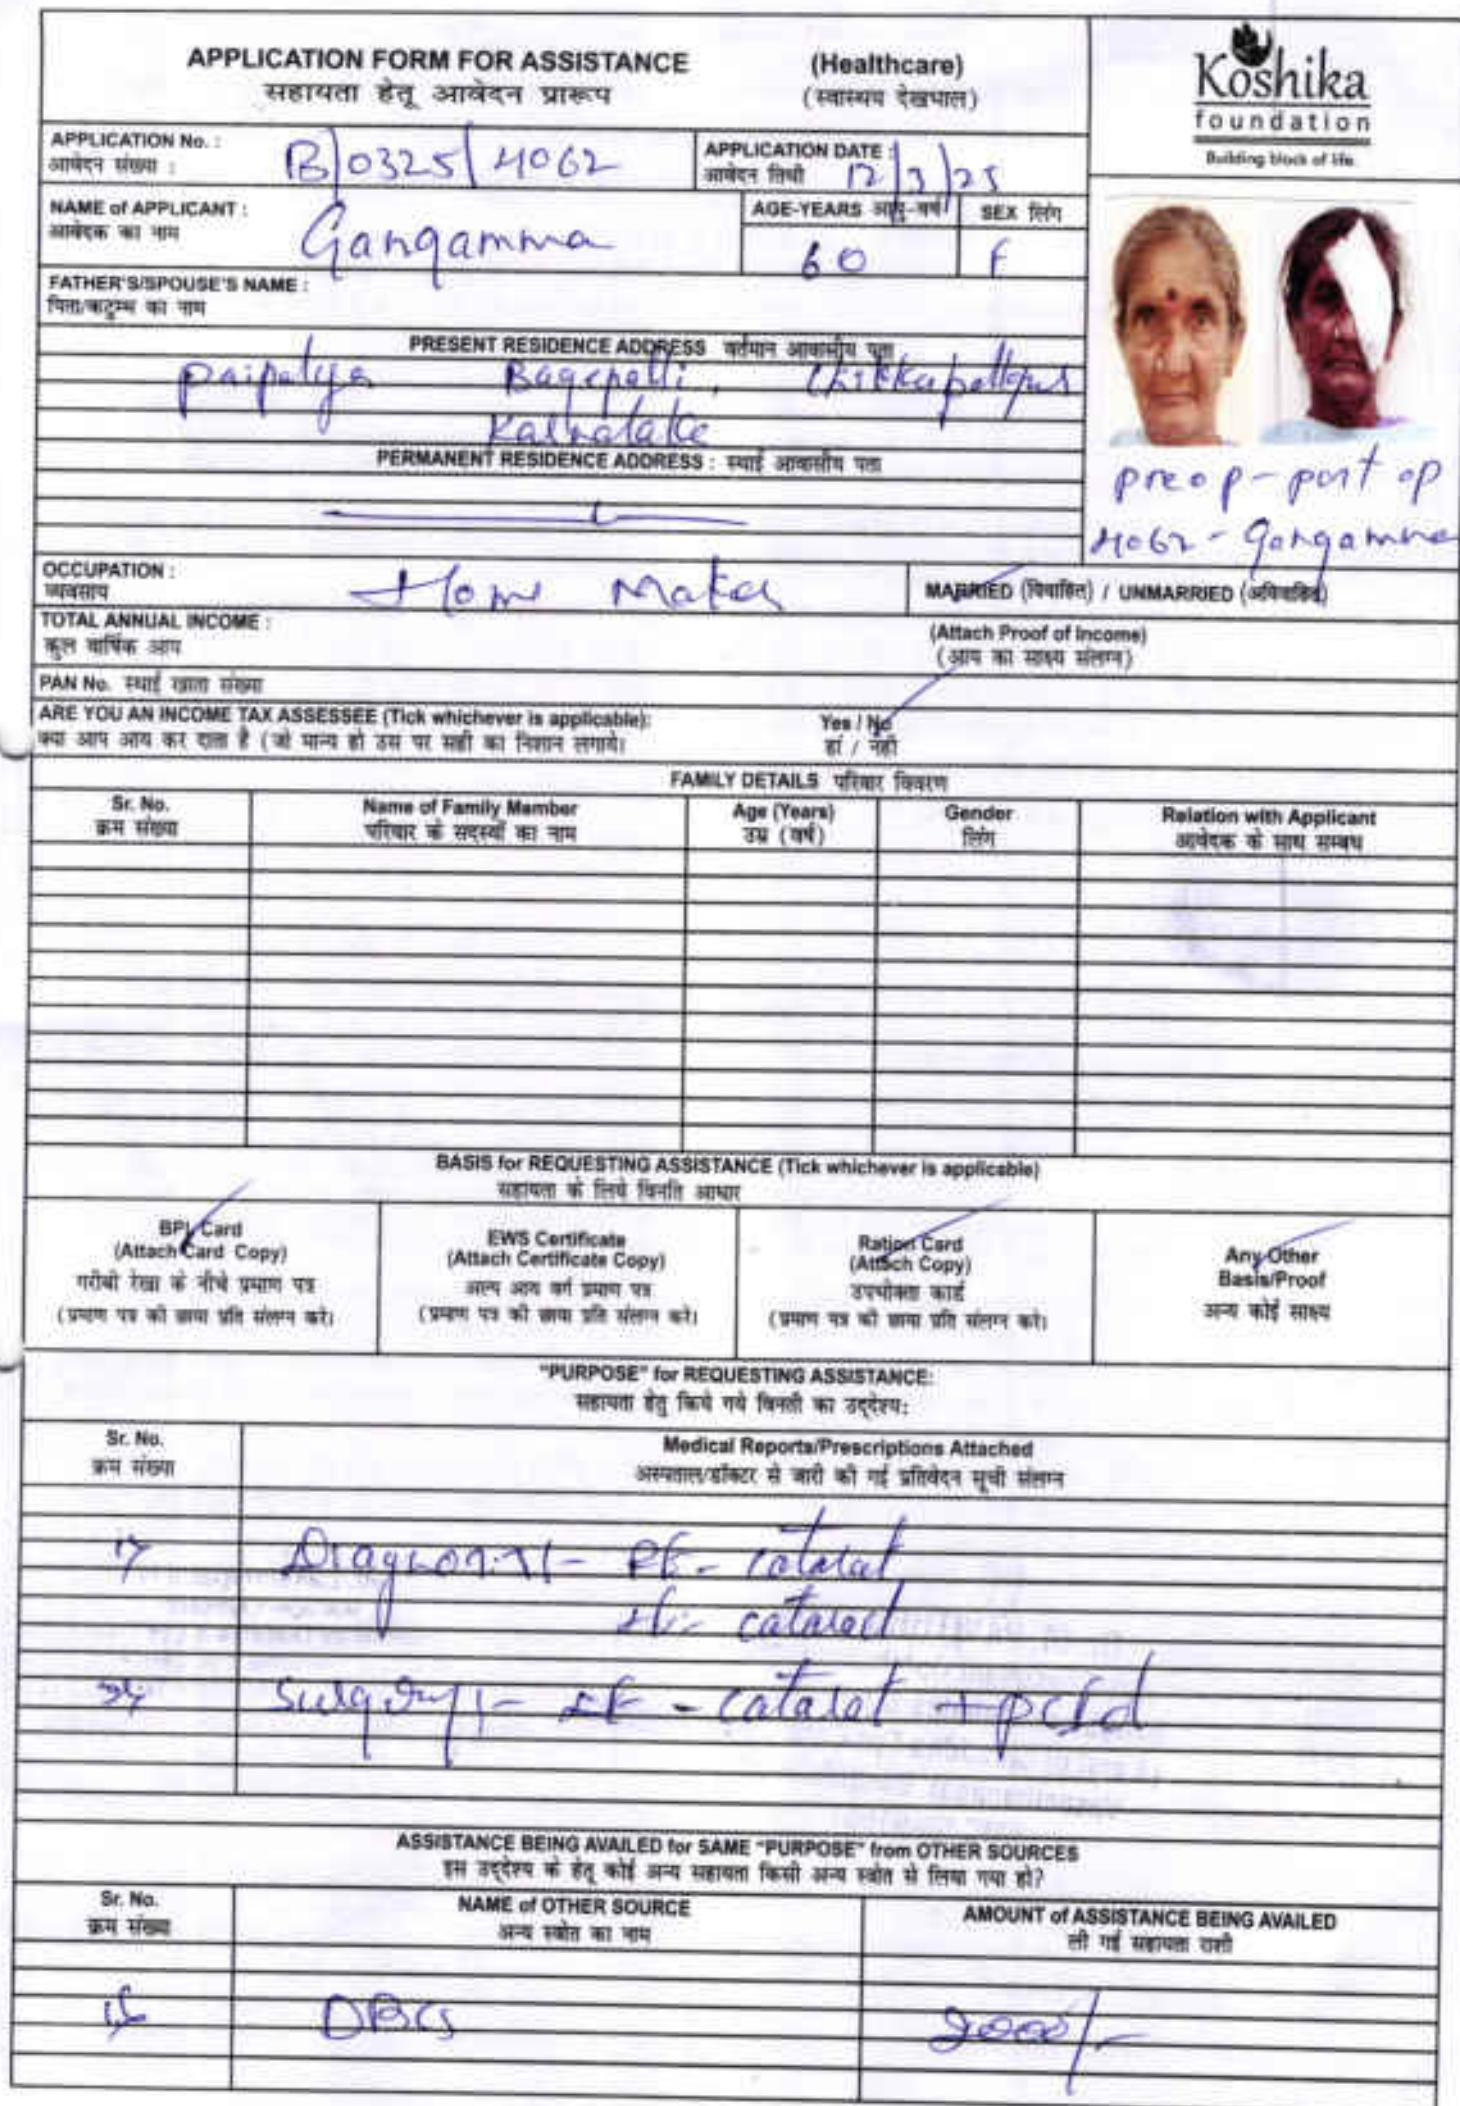 APPLICATION FORM FOR ASSISTANCE (Healthcare)
सहायता हेतू आवेदन प्रारूप (स्वास्थय देखभाल)
Koshika
foundation
Building block of life.
APPLICATION No. : B/0325/4062
आवेदन संख्या :
APPLICATION DATE : 12/3/25
आवेदन तिथी
NAME of APPLICANT : Gangamma
आवेदक का नाम
AGE-YEARS आयु-वर्ष 60
SEX लिंग F
FATHER'S/SPOUSE'S NAME :
पिता/कटुम्ब का नाम
PRESENT RESIDENCE ADDRESS वर्तमान आवासीय पता
paipalya Bagepalli, Chikkaballapur
Karnataka
PERMANENT RESIDENCE ADDRESS : स्थाई आवासीय पता
preop - post op
4062 - Gangamma
OCCUPATION : Home Maker
व्यवसाय
MARRIED (विवाहित) / UNMARRIED (अविवाहित)
TOTAL ANNUAL INCOME :
कुल वार्षिक आय
(Attach Proof of Income)
(आय का साक्ष्य संलग्न)
PAN No. स्थाई खाता संख्या
ARE YOU AN INCOME TAX ASSESSEE (Tick whichever is applicable): Yes / No
क्या आप आय कर दाता है (जो मान्य हो उस पर सही का निशान लगाये। हां / नहीं
FAMILY DETAILS परिवार विवरण
Sr. No. Name of Family Member Age (Years) Gender Relation with Applicant
क्रम संख्या परिवार के सदस्यों का नाम उम्र (वर्ष) लिंग आवेदक के साथ सम्बध
BASIS for REQUESTING ASSISTANCE (Tick whichever is applicable)
सहायता के लिये विनति आधार
BPL Card
(Attach Card Copy)
गरीबी रेखा के नीचे प्रमाण पत्र
(प्रमाण पत्र की छाया प्रति संलग्न करे।
EWS Certificate
(Attach Certificate Copy)
अल्प आय वर्ग प्रमाण पत्र
(प्रमाण पत्र की छाया प्रति संलग्न करे।
Ration Card
(Attach Copy)
उपभोक्ता कार्ड
(प्रमाण पत्र की छाया प्रति संलग्न करे।
Any Other
Basis/Proof
अन्य कोई साक्ष्य
"PURPOSE" for REQUESTING ASSISTANCE:
सहायता हेतु किये गये विनती का उद्देश्य:
Sr. No. Medical Reports/Prescriptions Attached
क्रम संख्या अस्पताल/डॉक्टर से जारी की गई प्रतिवेदन सूची संलग्न
Diagnosis:- RE - catarat
cataract
Surgery:- LE - catarat +
ASSISTANCE BEING AVAILED for SAME "PURPOSE" from OTHER SOURCES
इस उद्देश्य के हेतू कोई अन्य सहायता किसी अन्य स्त्रोत से लिया गया हो?
Sr. No. NAME of OTHER SOURCE AMOUNT of ASSISTANCE BEING AVAILED
क्रम संख्या अन्य स्त्रोत का नाम ली गई सहायता राशी
DBCS 2000/-